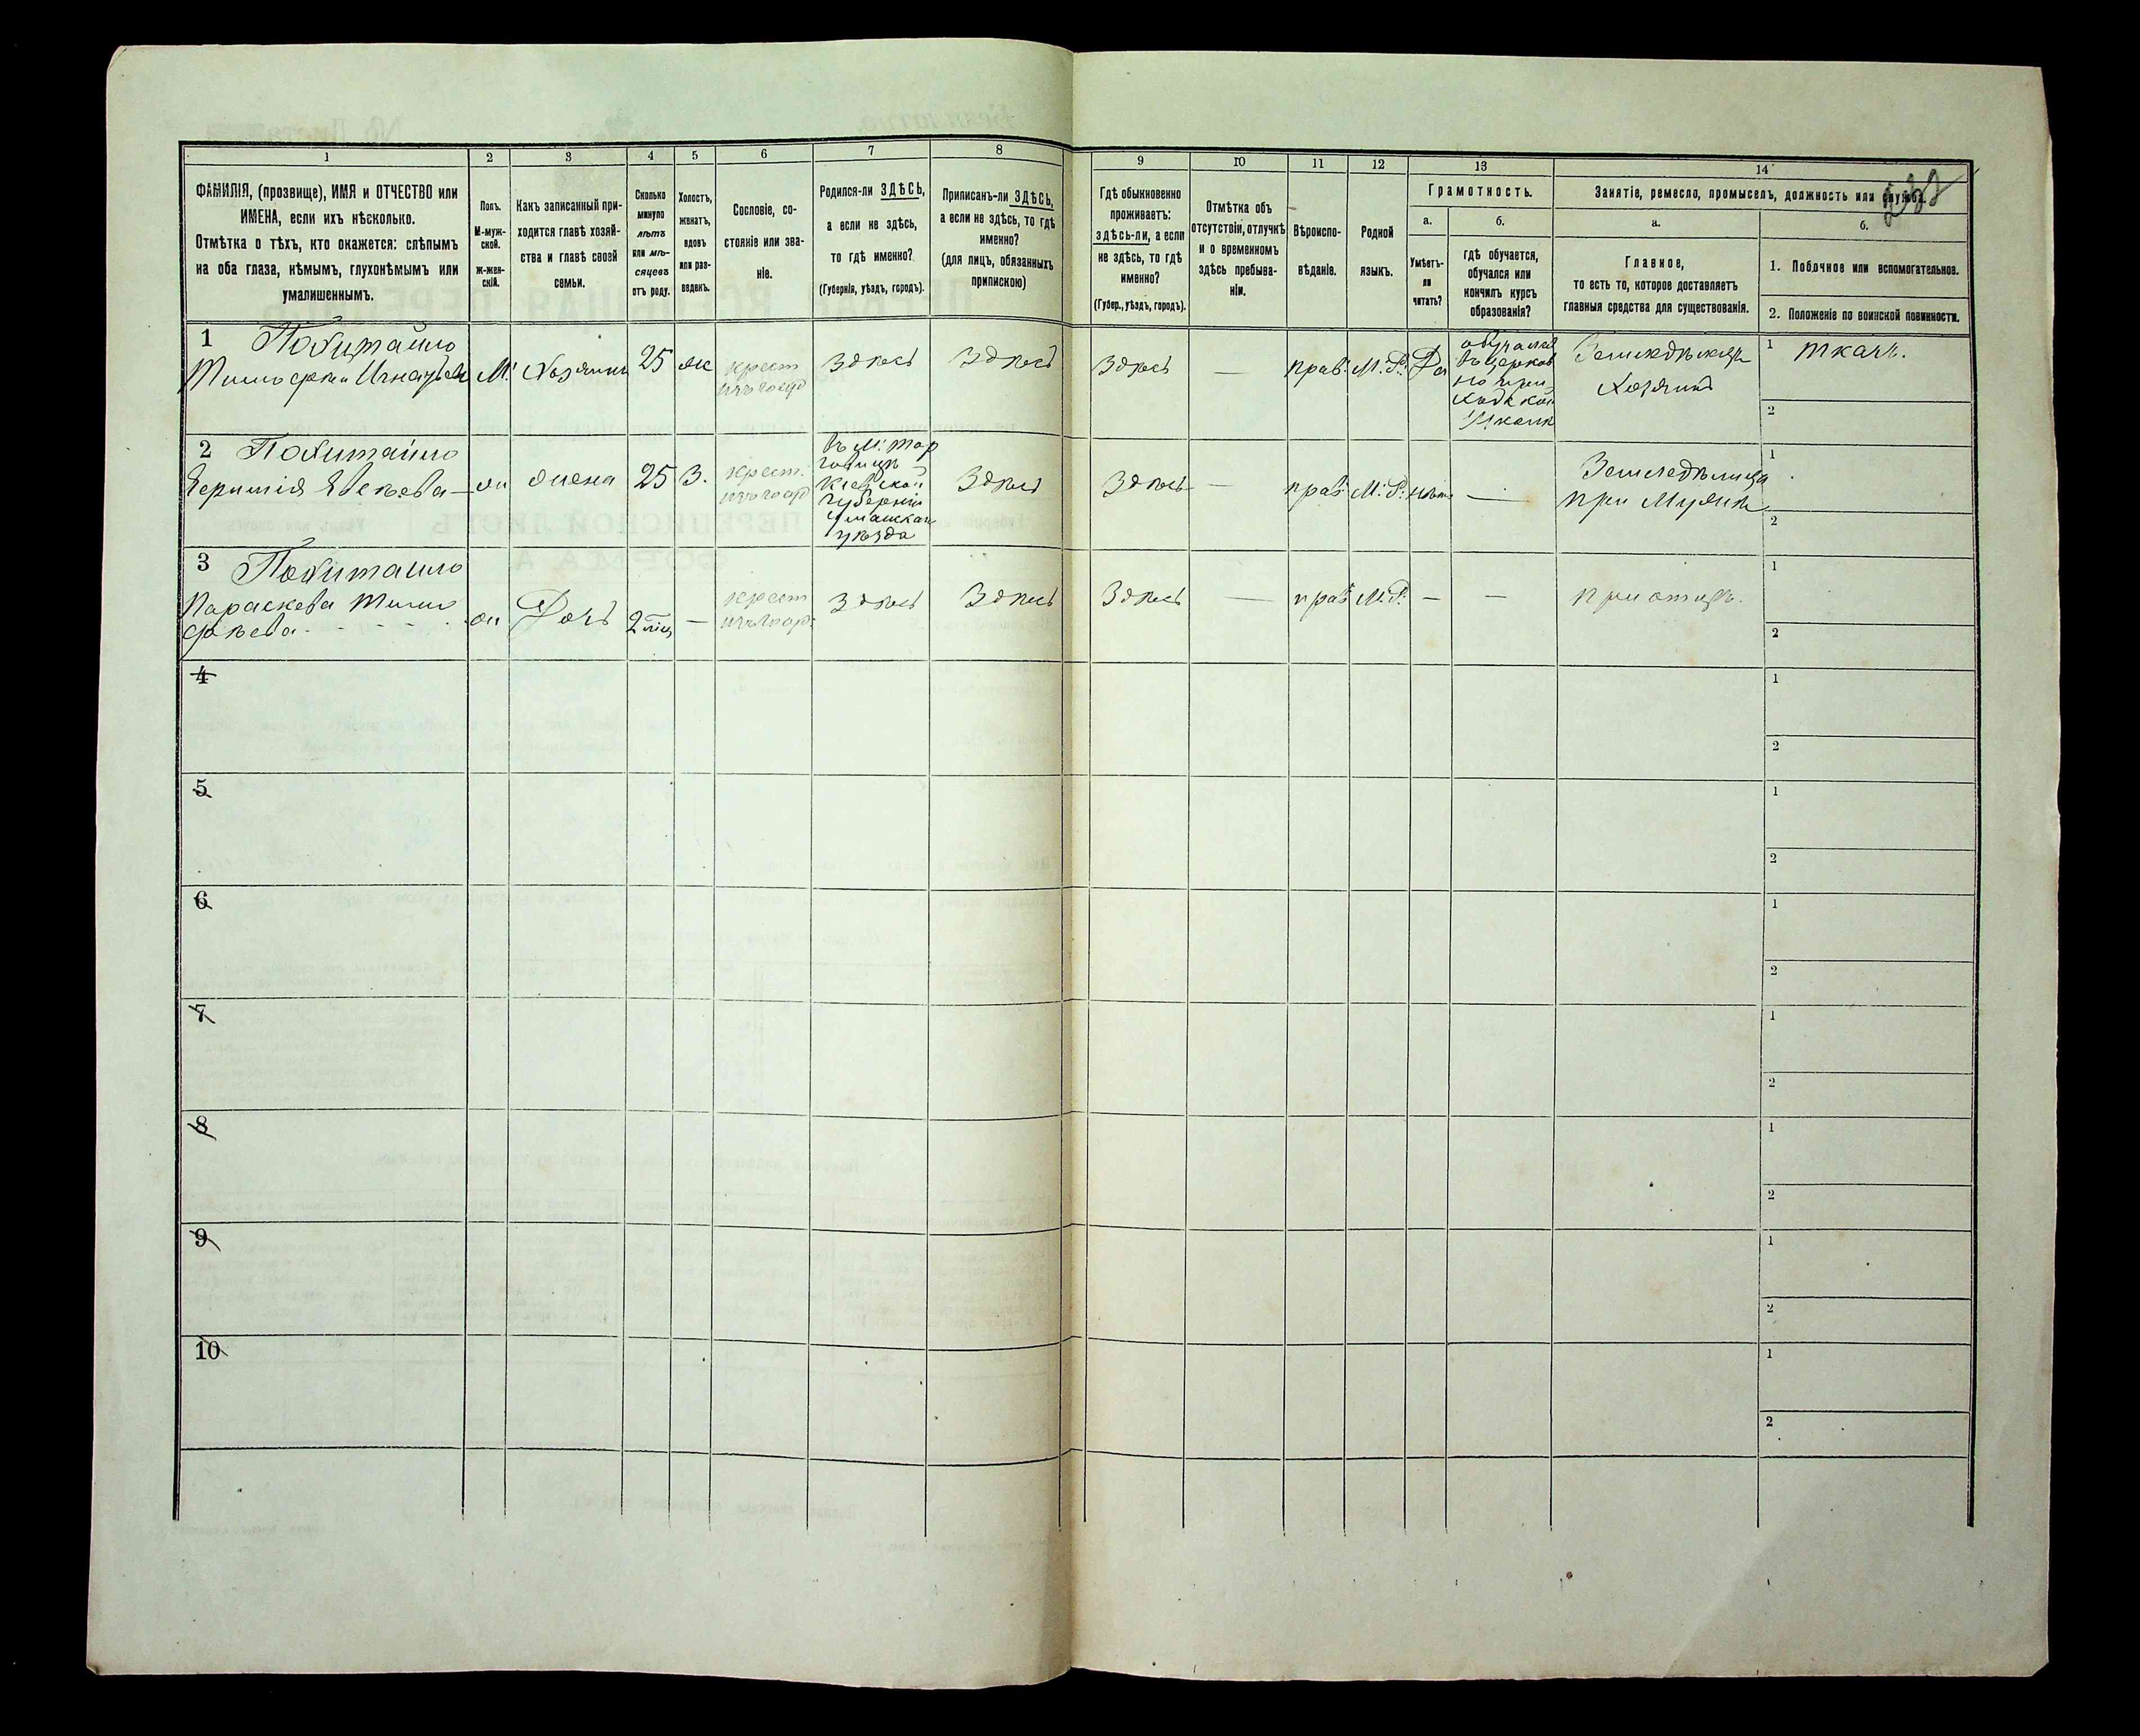 1 2 3 4 5 6 7 8 9 10 11 12 13 14
ФАМИЛІЯ, (прозвище), ИМЯ и ОТЧЕСТВО или
ИМЕНА, если ихъ нѣсколько.
Отмѣтка о тѣхъ, кто окажется: слѣпымъ
на оба глаза, нѣмымъ, глухонѣмымъ или
умалишеннымъ.
Полъ.
М-муж-
ской.
Ж-жен-
скій.
Какъ записанный при-
ходится главѣ хозяй-
ства и главѣ своей
семьи.
Сколько
минуло
лѣтъ
или мѣ-
сяцевъ
отъ роду.
Холостъ,
женатъ,
вдовъ
или раз-
веденъ.
Сословіе, со-
стояніе или зва-
ніе.
Родился-ли ЗДѢСЬ,
а если не здѣсь,
то гдѣ именно?
(Губернія, уѣздъ, городъ).
Приписанъ-ли ЗДѢСЬ,
а если не здѣсь, то гдѣ
именно?
(для лицъ, обязанныхъ
припискою)
Гдѣ обыкновенно
проживаетъ:
здѣсь-ли, а если
не здѣсь, то гдѣ
именно?
(Губер., уѣздъ, городъ).
Отмѣтка объ
отсутствіи, отлучкѣ
и о временномъ
здѣсь пребыва-
ніи.
Вѣроиспо-
вѣданіе.
Родной
языкъ.
Грамотность.
а.
Умѣетъ-
ли
читать?
б.
гдѣ обучается,
обучался или
кончилъ курсъ
образованія?
Занятіе, ремесло, промыселъ, должность или служба.
а.
Главное,
то есть то, которое доставляетъ
главныя средства для существованія.
б.
1. Побочное или вспомогательное.
2. Положеніе по воинской повинности.
1
М.
Хозяинъ
25
ж
крест
Здѣсь
Здѣсь
Здѣсь
—
прав.
М.Р.
Да
обучался
въ церков
но при-
ходской
школѣ
Хозяинъ
1 ткачъ.
2
2
ж
жена
25
З.
крест.
въ м. Тор
говицѣ
Кіевской
губерніи
Уманскаго
уѣзда
Здѣсь
Здѣсь
—
прав.
М.Р.
нѣтъ
—
Земледѣлица
при мужѣ
1
2
3
Параскева Тимо
фѣева
ж
Дочь
2 міц
—
крест
Здѣсь
Здѣсь
Здѣсь
—
прав
М.Р.
—
—
при отцѣ.
1
2
4
1
2
5
1
2
6
1
2
7
1
2
8
1
2
9
1
2
10
1
2